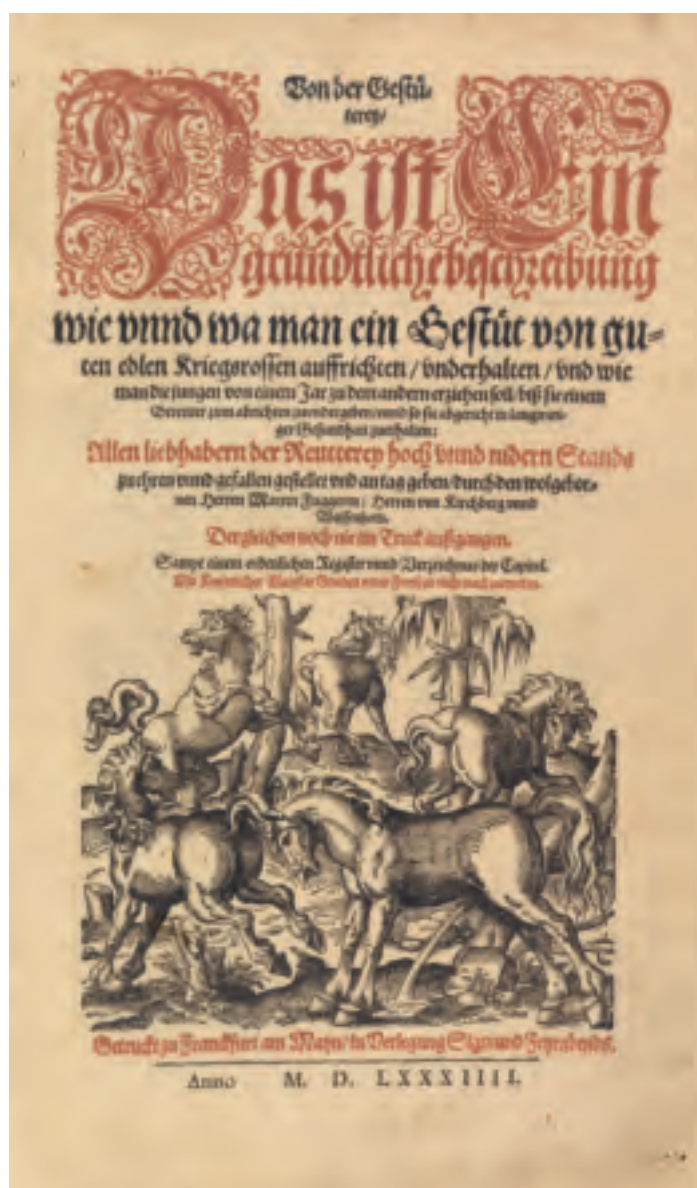 Von der Gestü-
terey/
Das ist Ein
gründtliche beschreibung
wie vnnd wa man ein Gestüt von gu-
ten edlen Kriegsrossen auffrichten / vnderhalten / vnd wie
man die jungen von einem Jar zu dem andern erziehen soll / biß sie einem
Bereitter zum abrichten zuvndergeben / vnnd so sie abgericht in langwiri-
ger Gesundheit zuerhalten:
Allen liebhabern der Reutterey hoch vnnd nidern Stands
zu ehren vnnd gefallen gestellet vnd an tag geben / durch den wolgebor-
nen Herren Marren Fuggern / Herren von Kirchberg vnnd
Weissenhorn.
Dergleichen noch nie im Truck außgangen.
Sampt einem ordenlichen Register vnnd Verzeichnus der Capitel.
Mit
Getruckt zu Franckfurt am Mayn / in Verlegung Sigmund Feyrabends.
Anno M. D. LXXXIIII.